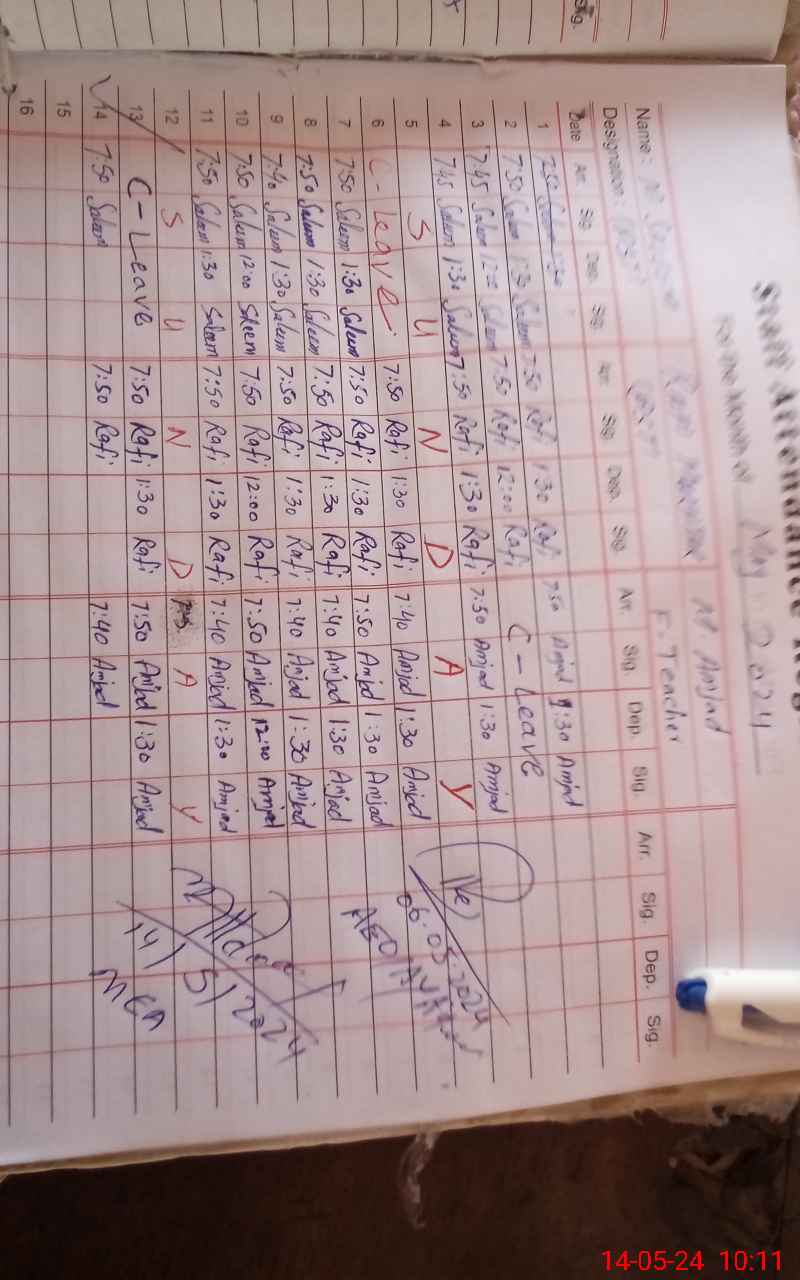 Staff Attendance Reg
For the Month of May 2024
Name: M. Amjad
Designation: F. Teacher
Date Arr. Sig. Dep. Sig. Arr. Sig. Dep. Sig. Arr. Sig. Dep. Sig. Arr. Sig. Dep. Sig.
1 7:50 Saleem 1:30
2 7:50 Saleem 1:30 Saleem 7:50 Rafi 1:30 Rafi 7:50 Amjad 1:30 Amjad
3 7:45 Saleem 12:00 Saleem 7:50 Rafi 12:00 Rafi C-Leave
4 7:45 Saleem 1:30 Saleem 7:50 Rafi 1:30 Rafi 7:50 Amjad 1:30 Amjad
5 S U N D A Y
6 C-Leave 7:50 Rafi 1:30 Rafi 7:40 Amjad 1:30 Amjad
7 7:50 Saleem 1:30 Saleem 7:50 Rafi 1:30 Rafi 7:50 Amjad 1:30 Amjad
8 7:50 Saleem 1:30 Saleem 7:50 Rafi 1:30 Rafi 7:40 Amjad 1:30 Amjad
9 7:40 Saleem 1:30 Saleem 7:50 Rafi 1:30 Rafi 7:40 Amjad 1:30 Amjad
10 7:50 Saleem 12:00 Saleem 7:50 Rafi 12:00 Rafi 7:50 Amjad 12:00 Amjad
11 7:50 Saleem 1:30 Saleem 7:50 Rafi 1:30 Rafi 7:40 Amjad 1:30 Amjad
12 S U N D A Y
13 C-Leave 7:50 Rafi 1:30 Rafi 7:50 Amjad 1:30 Amjad
14 7:50 Saleem 7:50 Rafi 7:40 Amjad
15
16
06.05.2024
AEO
14/5/2024
Sig.
14-05-24 10:11